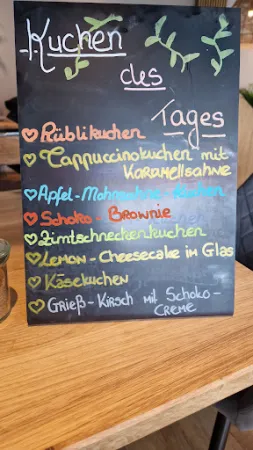 Kuchen
des
Tages
Rüblikuchen
Cappuccinokuchen mit
Karamellsahne
Apfel-Mohnsahne-Kuchen
Schoko-Brownie
Zimtschneckenkuchen
Lemon-Cheesecake im Glas
Käsekuchen
Grieß-Kirsch mit Schoko-
Creme